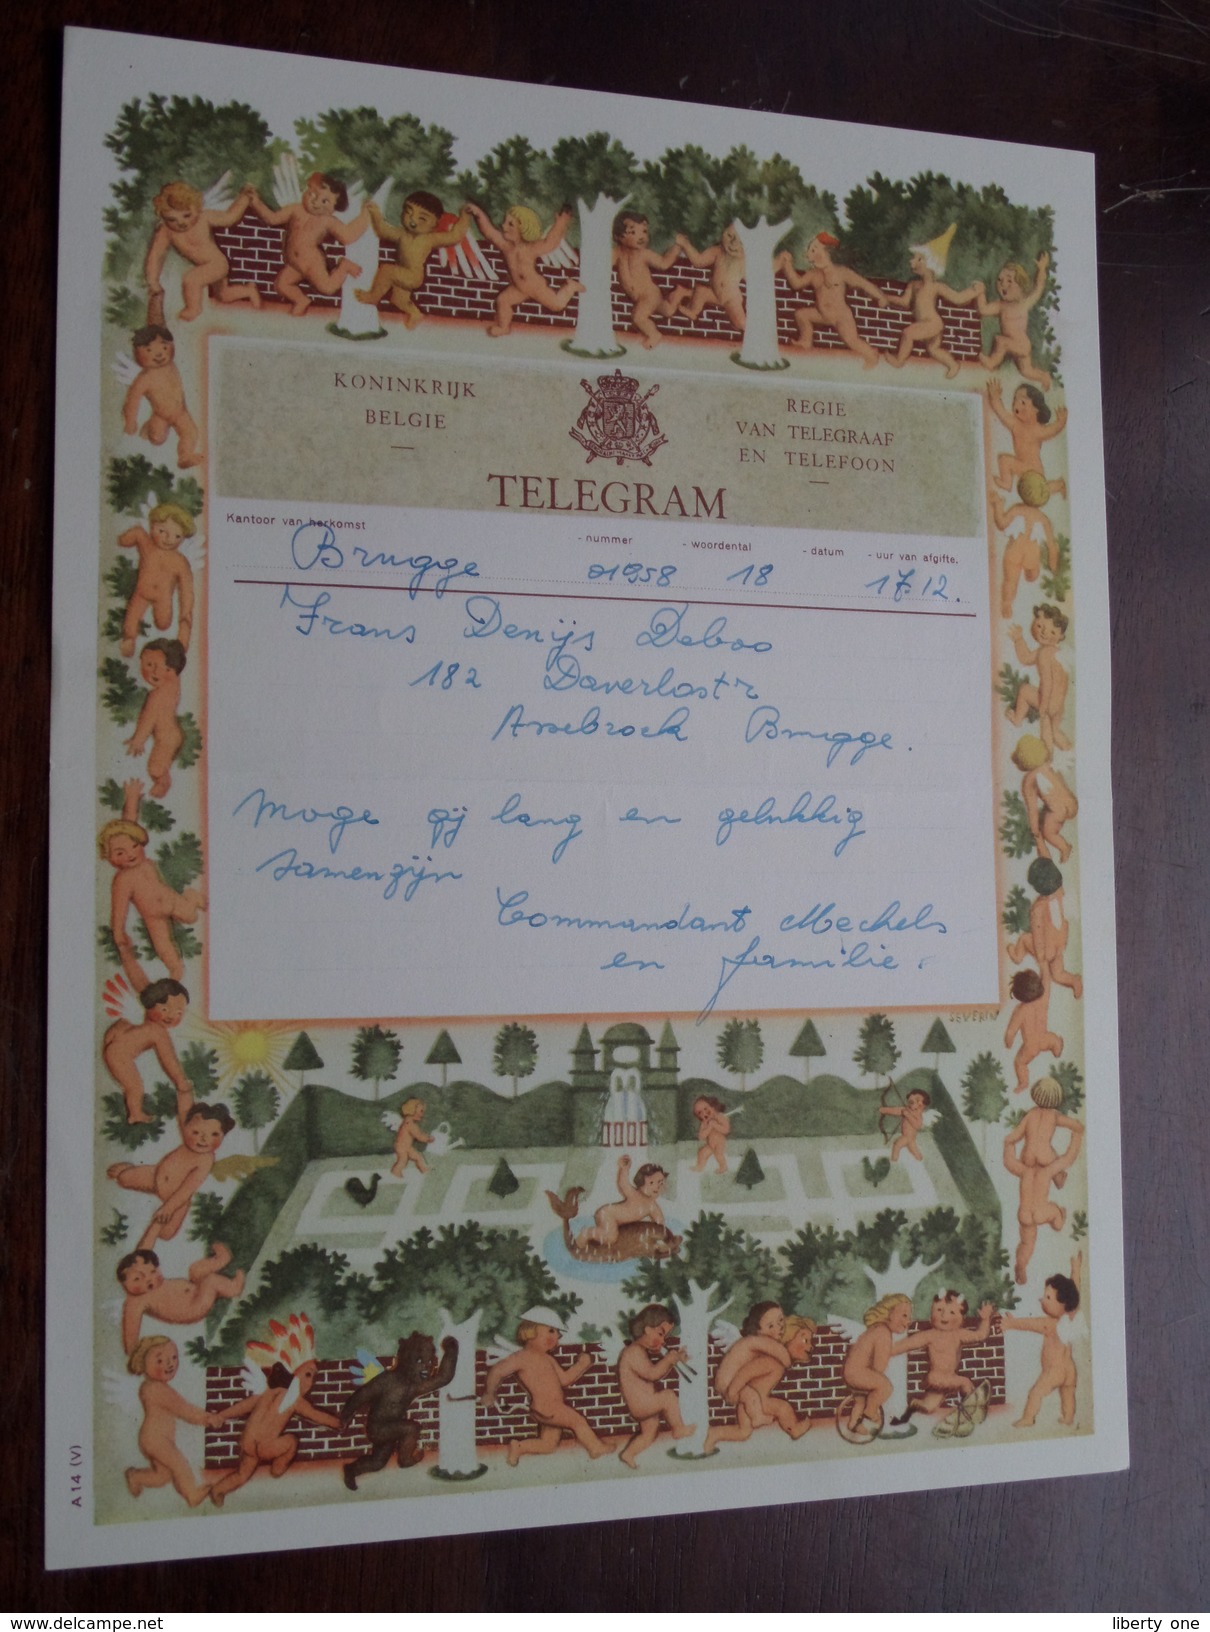 KONINKRIJK
BELGIE
REGIE
VAN TELEGRAAF
EN TELEFOON
TELEGRAM
Kantoor van herkomst - nummer - woordental - datum - uur van afgifte.
Brugge 01958 18 17.12.
Frans Denijs Deboo
182 Daverlostr
Assebroek Brugge.
Moge gij lang en gelukkig
samenzijn
Commandant Mechels
en familie.
SEVERIN
A 14 (V)
www.delcampe.net
liberty one